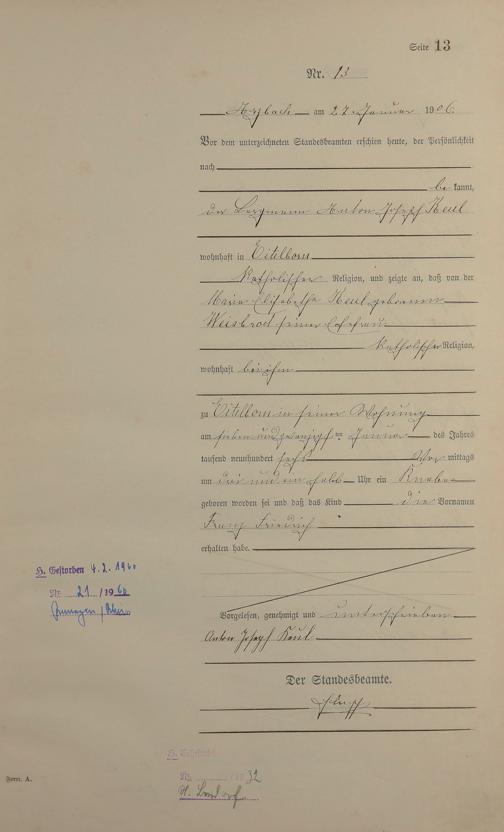 Seite 13
Nr. 13
Arzbach am 27 Januar 1906.
Vor dem unterzeichneten Standesbeamten erschien heute, der Persönlichkeit
nach
be kannt,
der Bergmann Anton Joseph Keul
wohnhaft in Eitelborn
Katholischer Religion, und zeigte an, daß von der
Maria Elisabetha Keul geborenen
Weisbrod seiner Ehefrau
Katholischer Religion,
wohnhaft bei ihm
zu Eitelborn in seiner Wohnung
am sieben und zwanzigsten Januar des Jahres
tausend neunhundert sechs Vor mittags
um drei und ein halb Uhr ein Knabe
geboren worden sei und daß das Kind die Vornamen
Franz Friedrich
erhalten habe.
H. Gestorben 4.2.1960
Nr. 21 /1960
Vorgelesen, genehmigt und unterschrieben
Anton Joseph Keul
Der Standesbeamte.
H.
Nr. 32
Form. A.